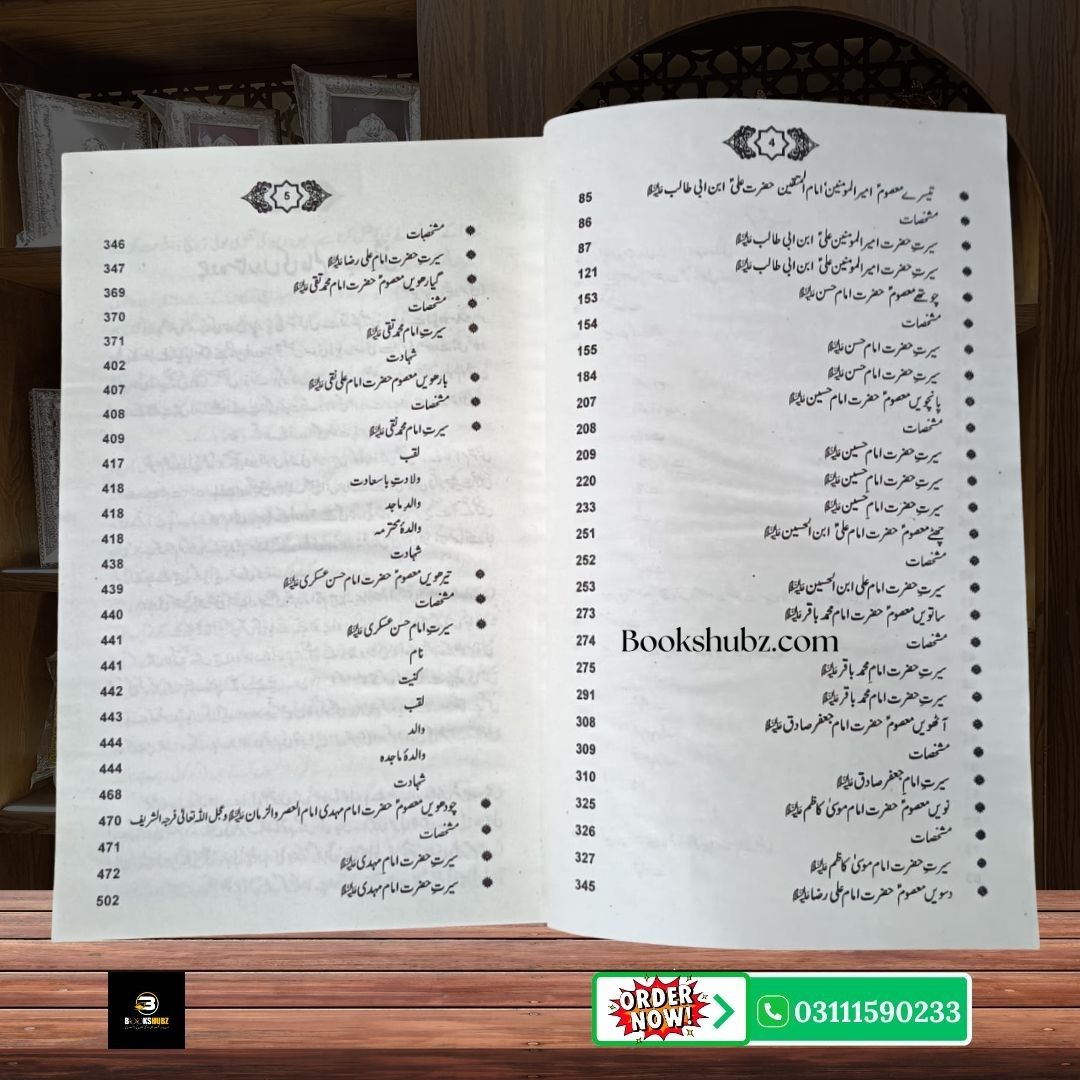 4
تیسرے معصومؑ امیر المومنین امام المتقین حضرت علیؑ ابن ابی طالب علیہ السلام 85
مشخصات 86
سیرتِ حضرت امیر المومنین علیؑ ابن ابی طالب علیہ السلام 87
سیرتِ حضرت امیر المومنین علیؑ ابن ابی طالب علیہ السلام 121
چوتھے معصومؑ حضرت امام حسن علیہ السلام 153
مشخصات 154
سیرتِ حضرت امام حسن علیہ السلام 155
سیرتِ حضرت امام حسن علیہ السلام 184
پانچویں معصومؑ حضرت امام حسین علیہ السلام 207
مشخصات 208
سیرتِ حضرت امام حسین علیہ السلام 209
سیرتِ حضرت امام حسین علیہ السلام 220
سیرتِ حضرت امام حسین علیہ السلام 233
چھٹے معصومؑ حضرت امام علیؑ ابن الحسین علیہ السلام 251
مشخصات 252
سیرتِ حضرت امام علی ابن الحسین علیہ السلام 253
ساتویں معصومؑ حضرت امام محمد باقر علیہ السلام 273
مشخصات 274
سیرتِ حضرت امام محمد باقر علیہ السلام 275
سیرتِ حضرت امام محمد باقر علیہ السلام 291
آٹھویں معصومؑ حضرت امام جعفر صادق علیہ السلام 308
مشخصات 309
سیرتِ امام جعفر صادق علیہ السلام 310
نویں معصومؑ حضرت امام موسیٰ کاظم علیہ السلام 325
مشخصات 326
سیرتِ حضرت امام موسیٰ کاظم علیہ السلام 327
دسویں معصومؑ حضرت امام علی رضا علیہ السلام 345
5
مشخصات 346
سیرتِ حضرت امام علی رضا علیہ السلام 347
گیارھویں معصومؑ حضرت امام محمد تقی علیہ السلام 369
مشخصات 370
سیرتِ امام محمد تقی علیہ السلام 371
شہادت 402
بارھویں معصوم حضرت امام علی نقی علیہ السلام 407
مشخصات 408
سیرتِ امام محمد نقی علیہ السلام 409
لقب 417
ولادتِ باسعادت 418
والد ماجد 418
والدۂ محترمہ 418
شہادت 438
تیرھویں معصومؑ حضرت امام حسن عسکری علیہ السلام 439
مشخصات 440
سیرتِ امام حسن عسکری علیہ السلام 441
نام 441
کنیت 442
لقب 443
والد 444
والدۂ ماجدہ 444
شہادت 468
چودھویں معصومؑ حضرت امام مہدی امام العصر والزمان علیہ السلام وعجل اللہ تعالیٰ فرجہ الشریف 470
مشخصات 471
سیرتِ حضرت امام مہدی علیہ السلام 472
سیرتِ حضرت امام مہدی علیہ السلام 502
Bookshubz.com
BOOKSHUBZ
ORDER NOW!
03111590233